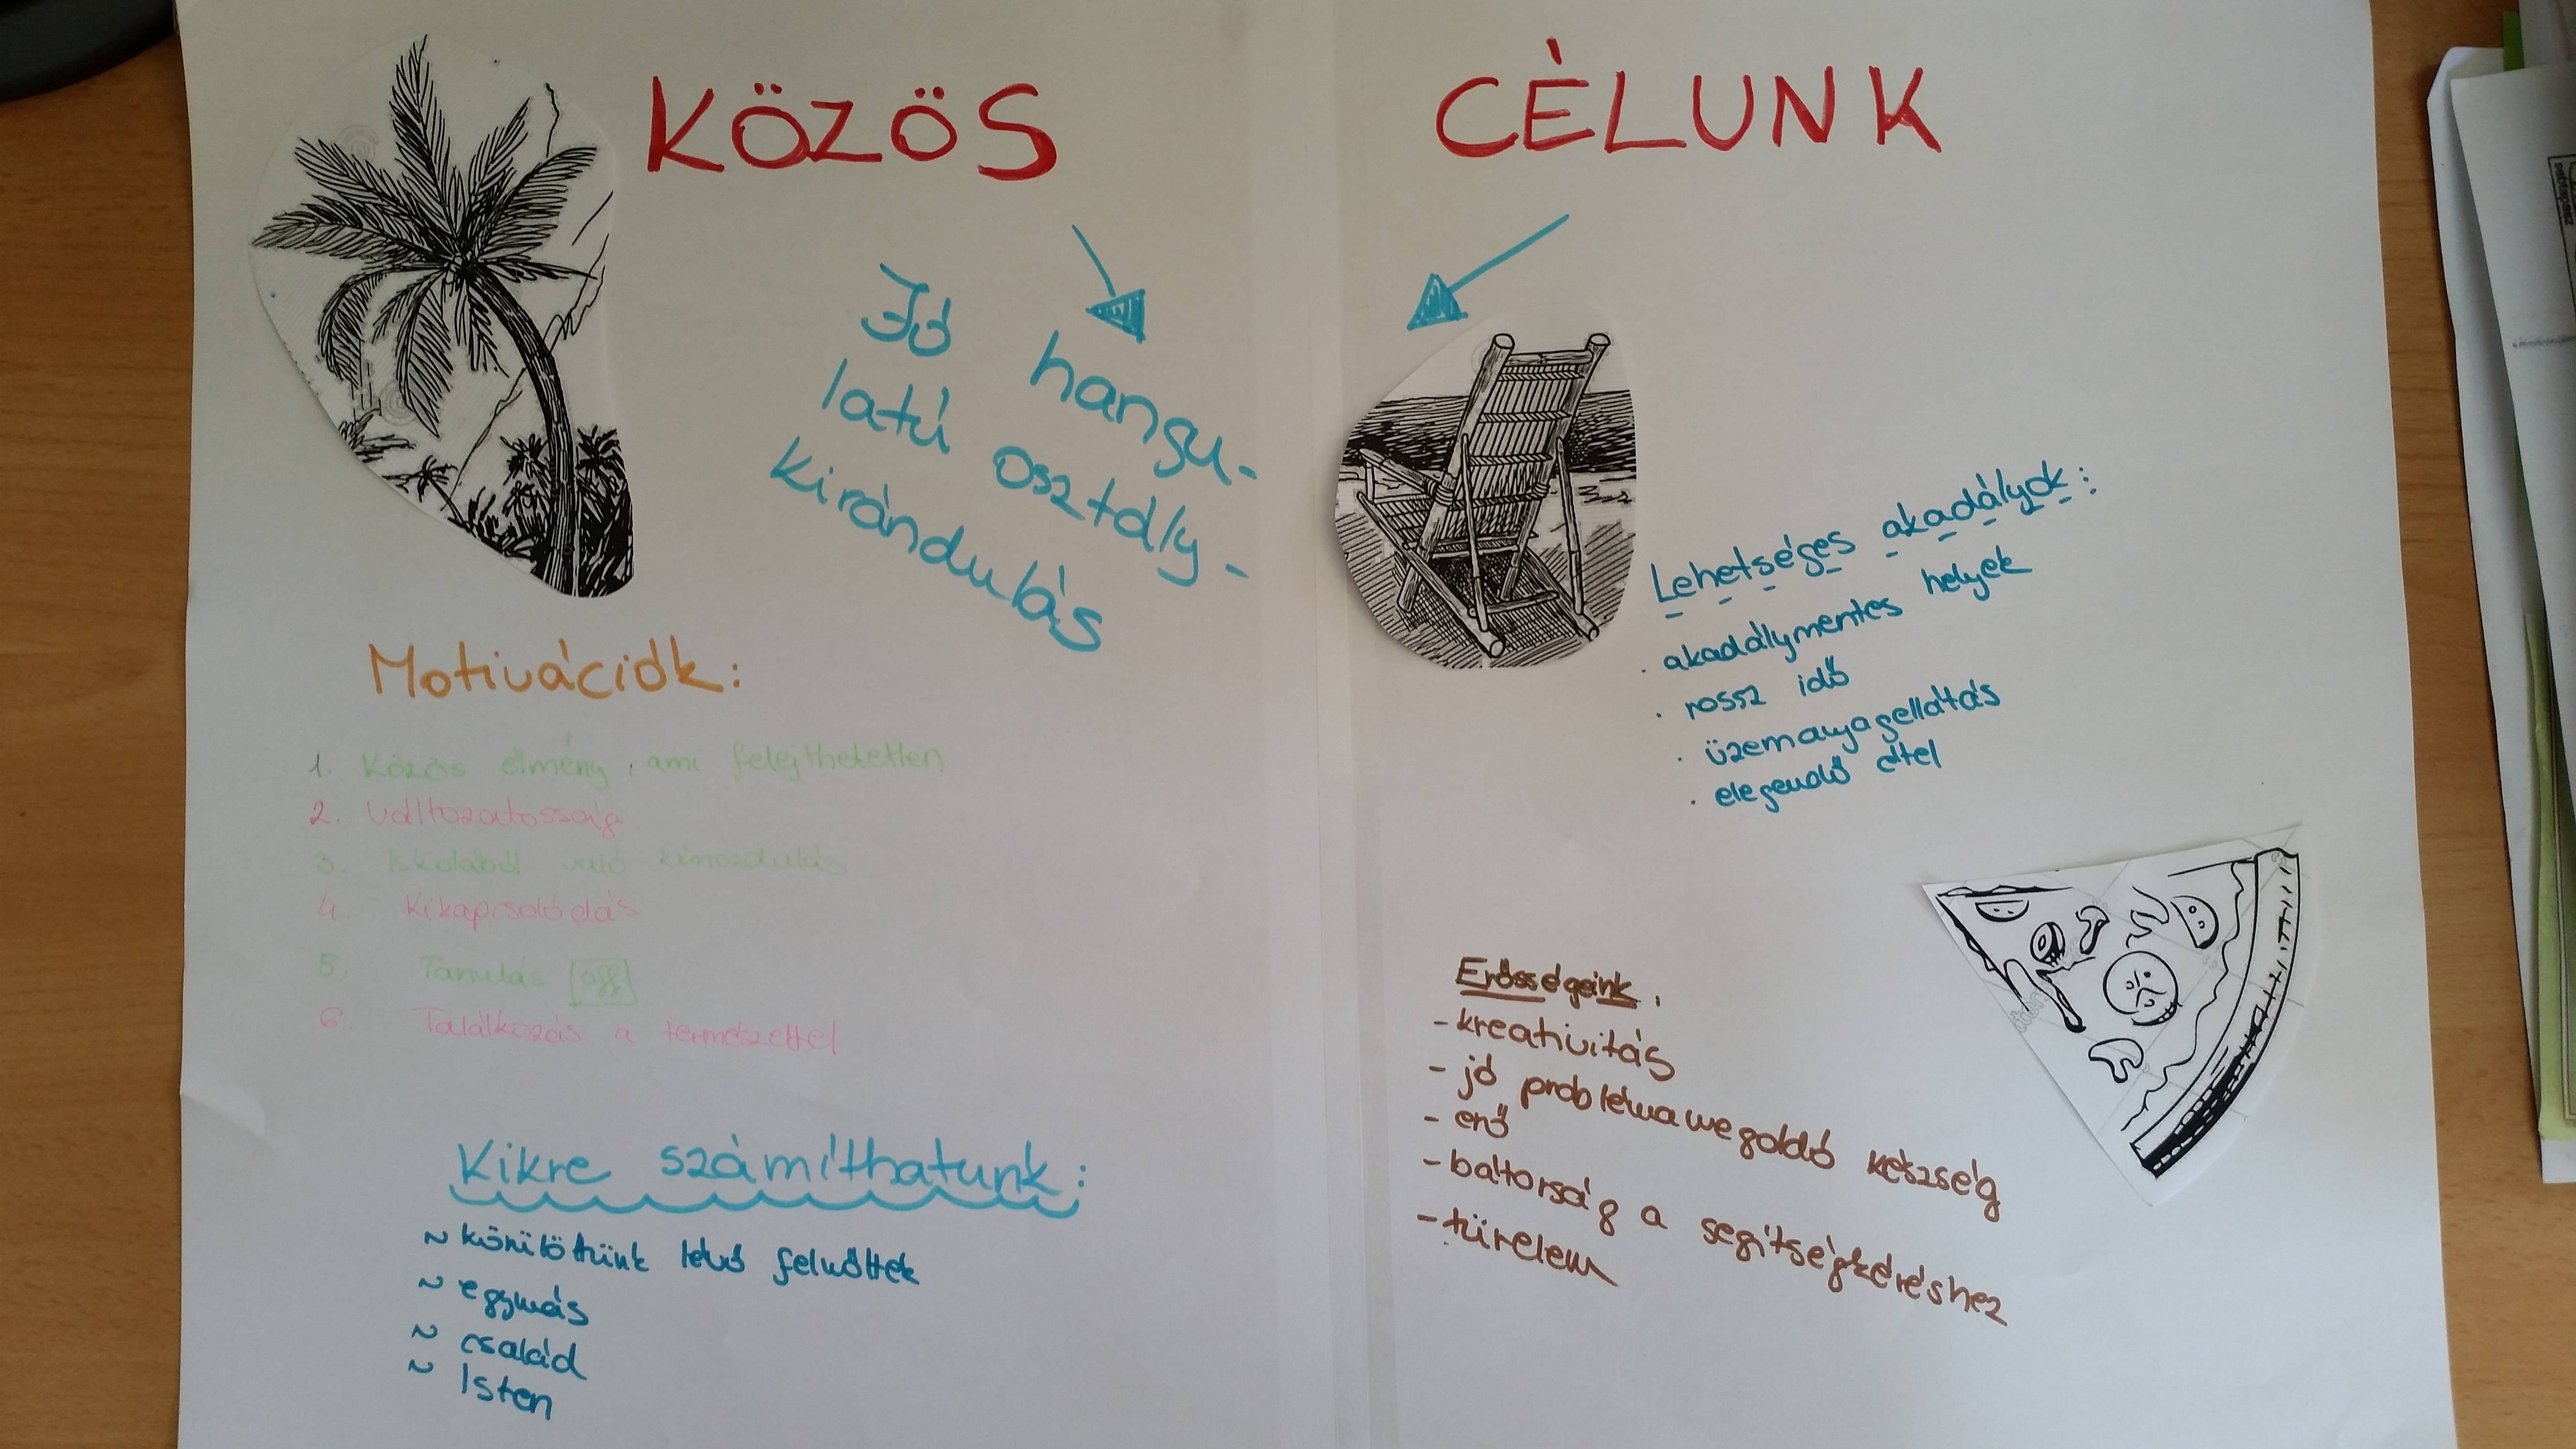 KÖZÖS CÉLUNK
Jó hangu-
latú osztály-
kirándulás
Motivációk:
1. Közös élmény, ami felejthetetlen
2. Változatosság
3. Iskolából való kimozdulás
4. Kikapcsolódás
5. Tanulás off
6 Találkozás a természettel
Kikre számíthatunk:
~ körülöttünk lévő felnőttek
~ egymás
~ család
~ Isten
Lehetséges akadályok:
· akadálymentes helyek
· rossz idő
· üzemanyagellátás
· elegendő étel
Erősségeink:
- kreativitás
- jó problémamegoldó készség
- erő
- bátorság a segítségkéréshez
- türelem